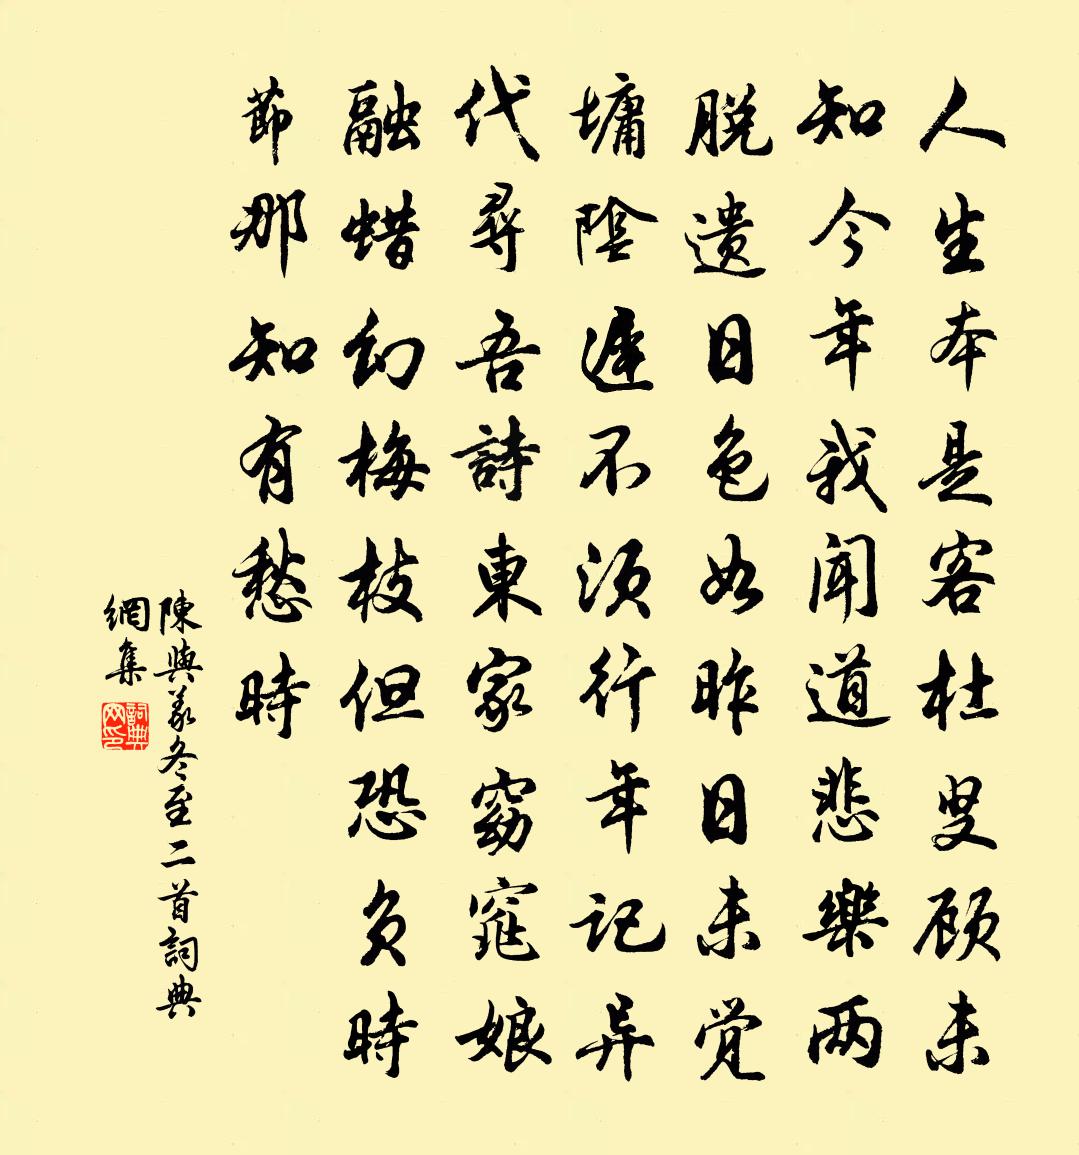 人生本是客杜叟顾未
知今年我闻道悲樂两
脱遗日色如昨日未觉
墉陰遲不须行年记异
代尋吾詩東家窈窕娘
融蜡幻梅枝但恐负時
節那知有愁時
陳與義冬至二首詞典
網集
詞典網印